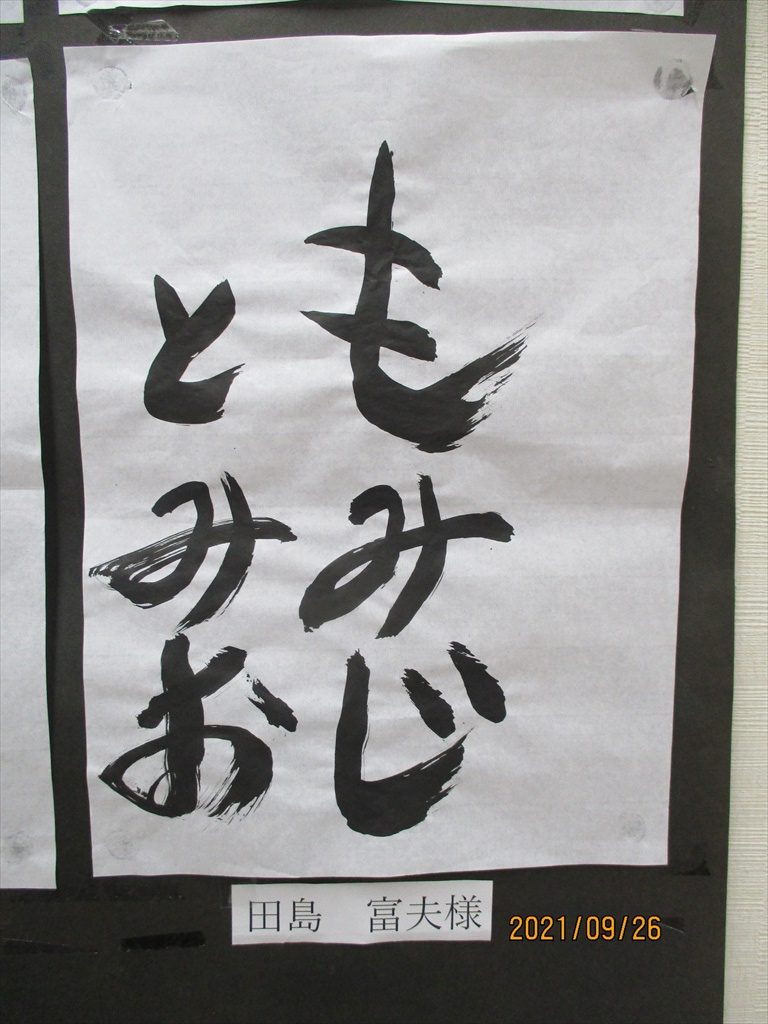 もみじ
とみお
田島 富夫様
2021/09/26